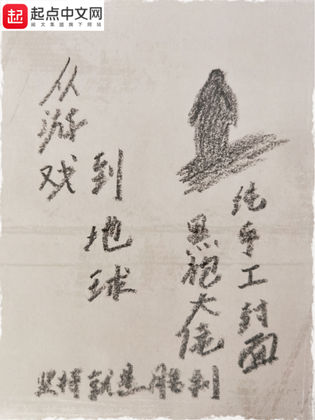 起点
起点中文网
阅文集团旗下网站
从游戏
到地球
黑袍大佬
纯手工封面
坚持就是胜利